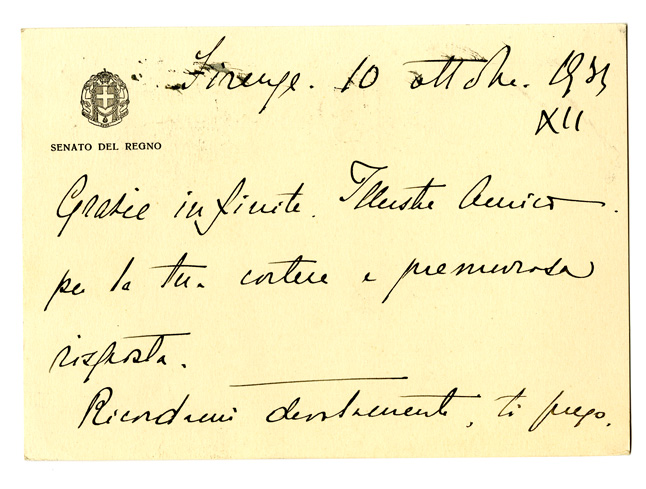 Firenze. 10 ottobre. 193
XII
SENATO DEL REGNO
Grazie infinite. Illustre Amico.
per la tua cortese e premurosa
risposta.
Ricordami devotamente, ti prego.